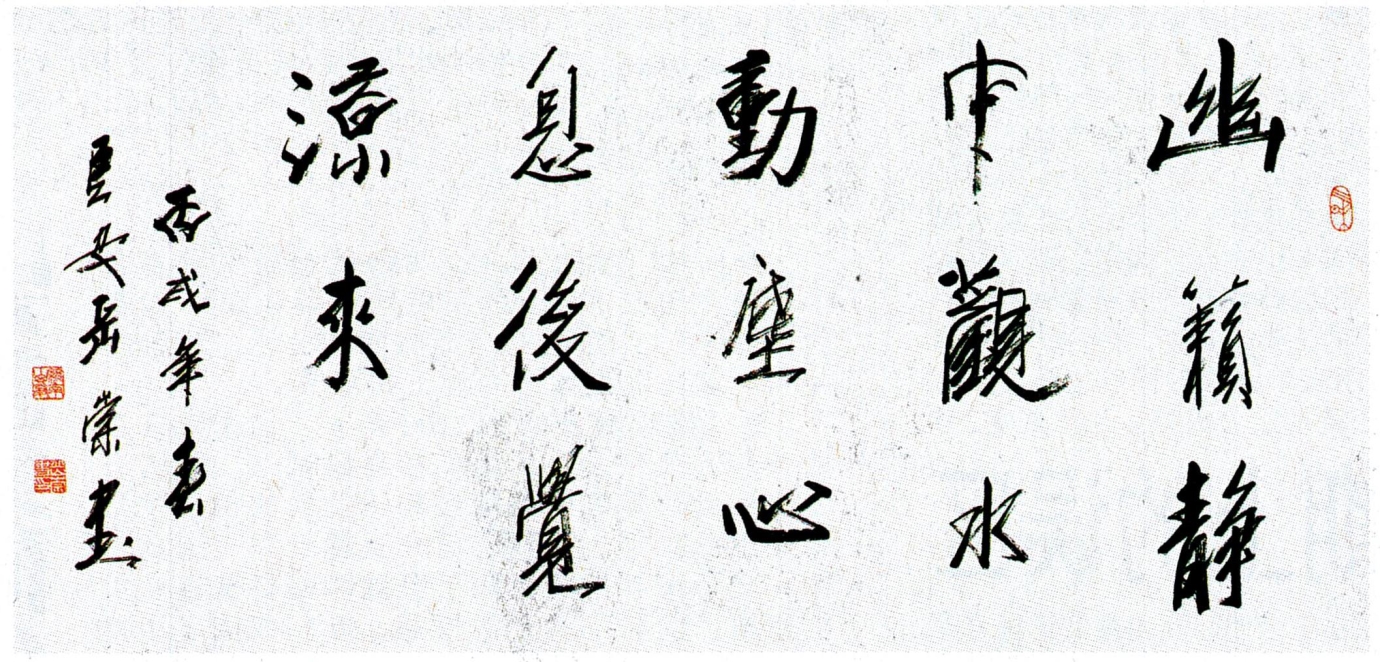 幽籟靜
中觀水
動塵心
息後覺
涼來
丙戌年春
岳崇書